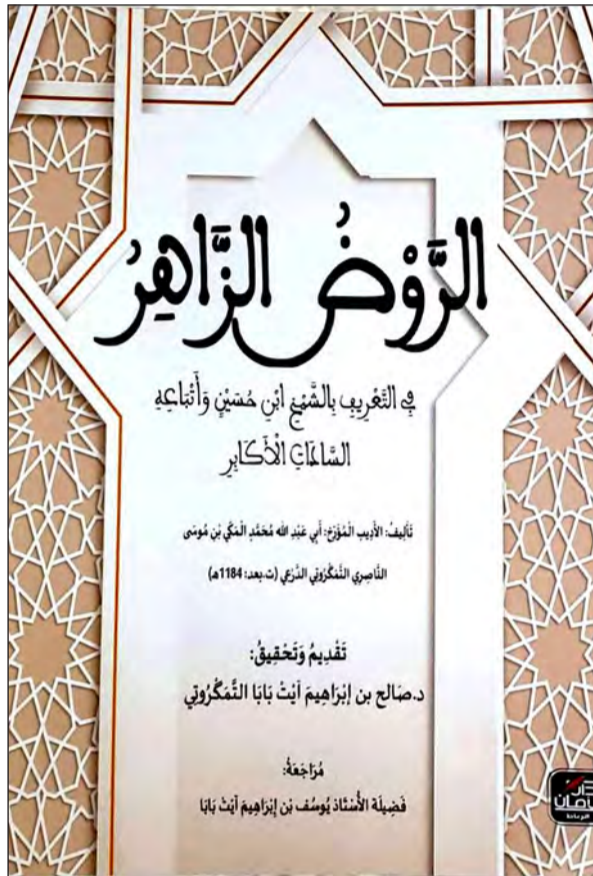 الرَّوْضُ الزَّاهِرُ
فِي التَّعْرِيفِ بِالشَّيْخِ ابْنِ حُسَيْنٍ وَأَتْبَاعِهِ
السَّادَاتِ الْأَكَابِرِ
تَأليفُ: الأَدِيبِ الْمُؤَرِّخِ: أَبِي عَبْدِ الله مُحَمَّدِ الْمَكِّي بْنِ مُوسَى
النَّاصِرِي التَّمَكْرُوتِي الدَّرْعِي (ت.بعد: 1184هـ)
تَقْدِيمُ وَتَحْقِيقُ:
د.صَالِح بن إبْرَاهِيمَ آيْتْ بَابَا التَّمَكْرُوتِي
مُرَاجَعَةُ:
فَضِيلَة الأُسْتَاذ يُوسُف بْن إِبْرَاهِيمَ آيْتْ بَابَا